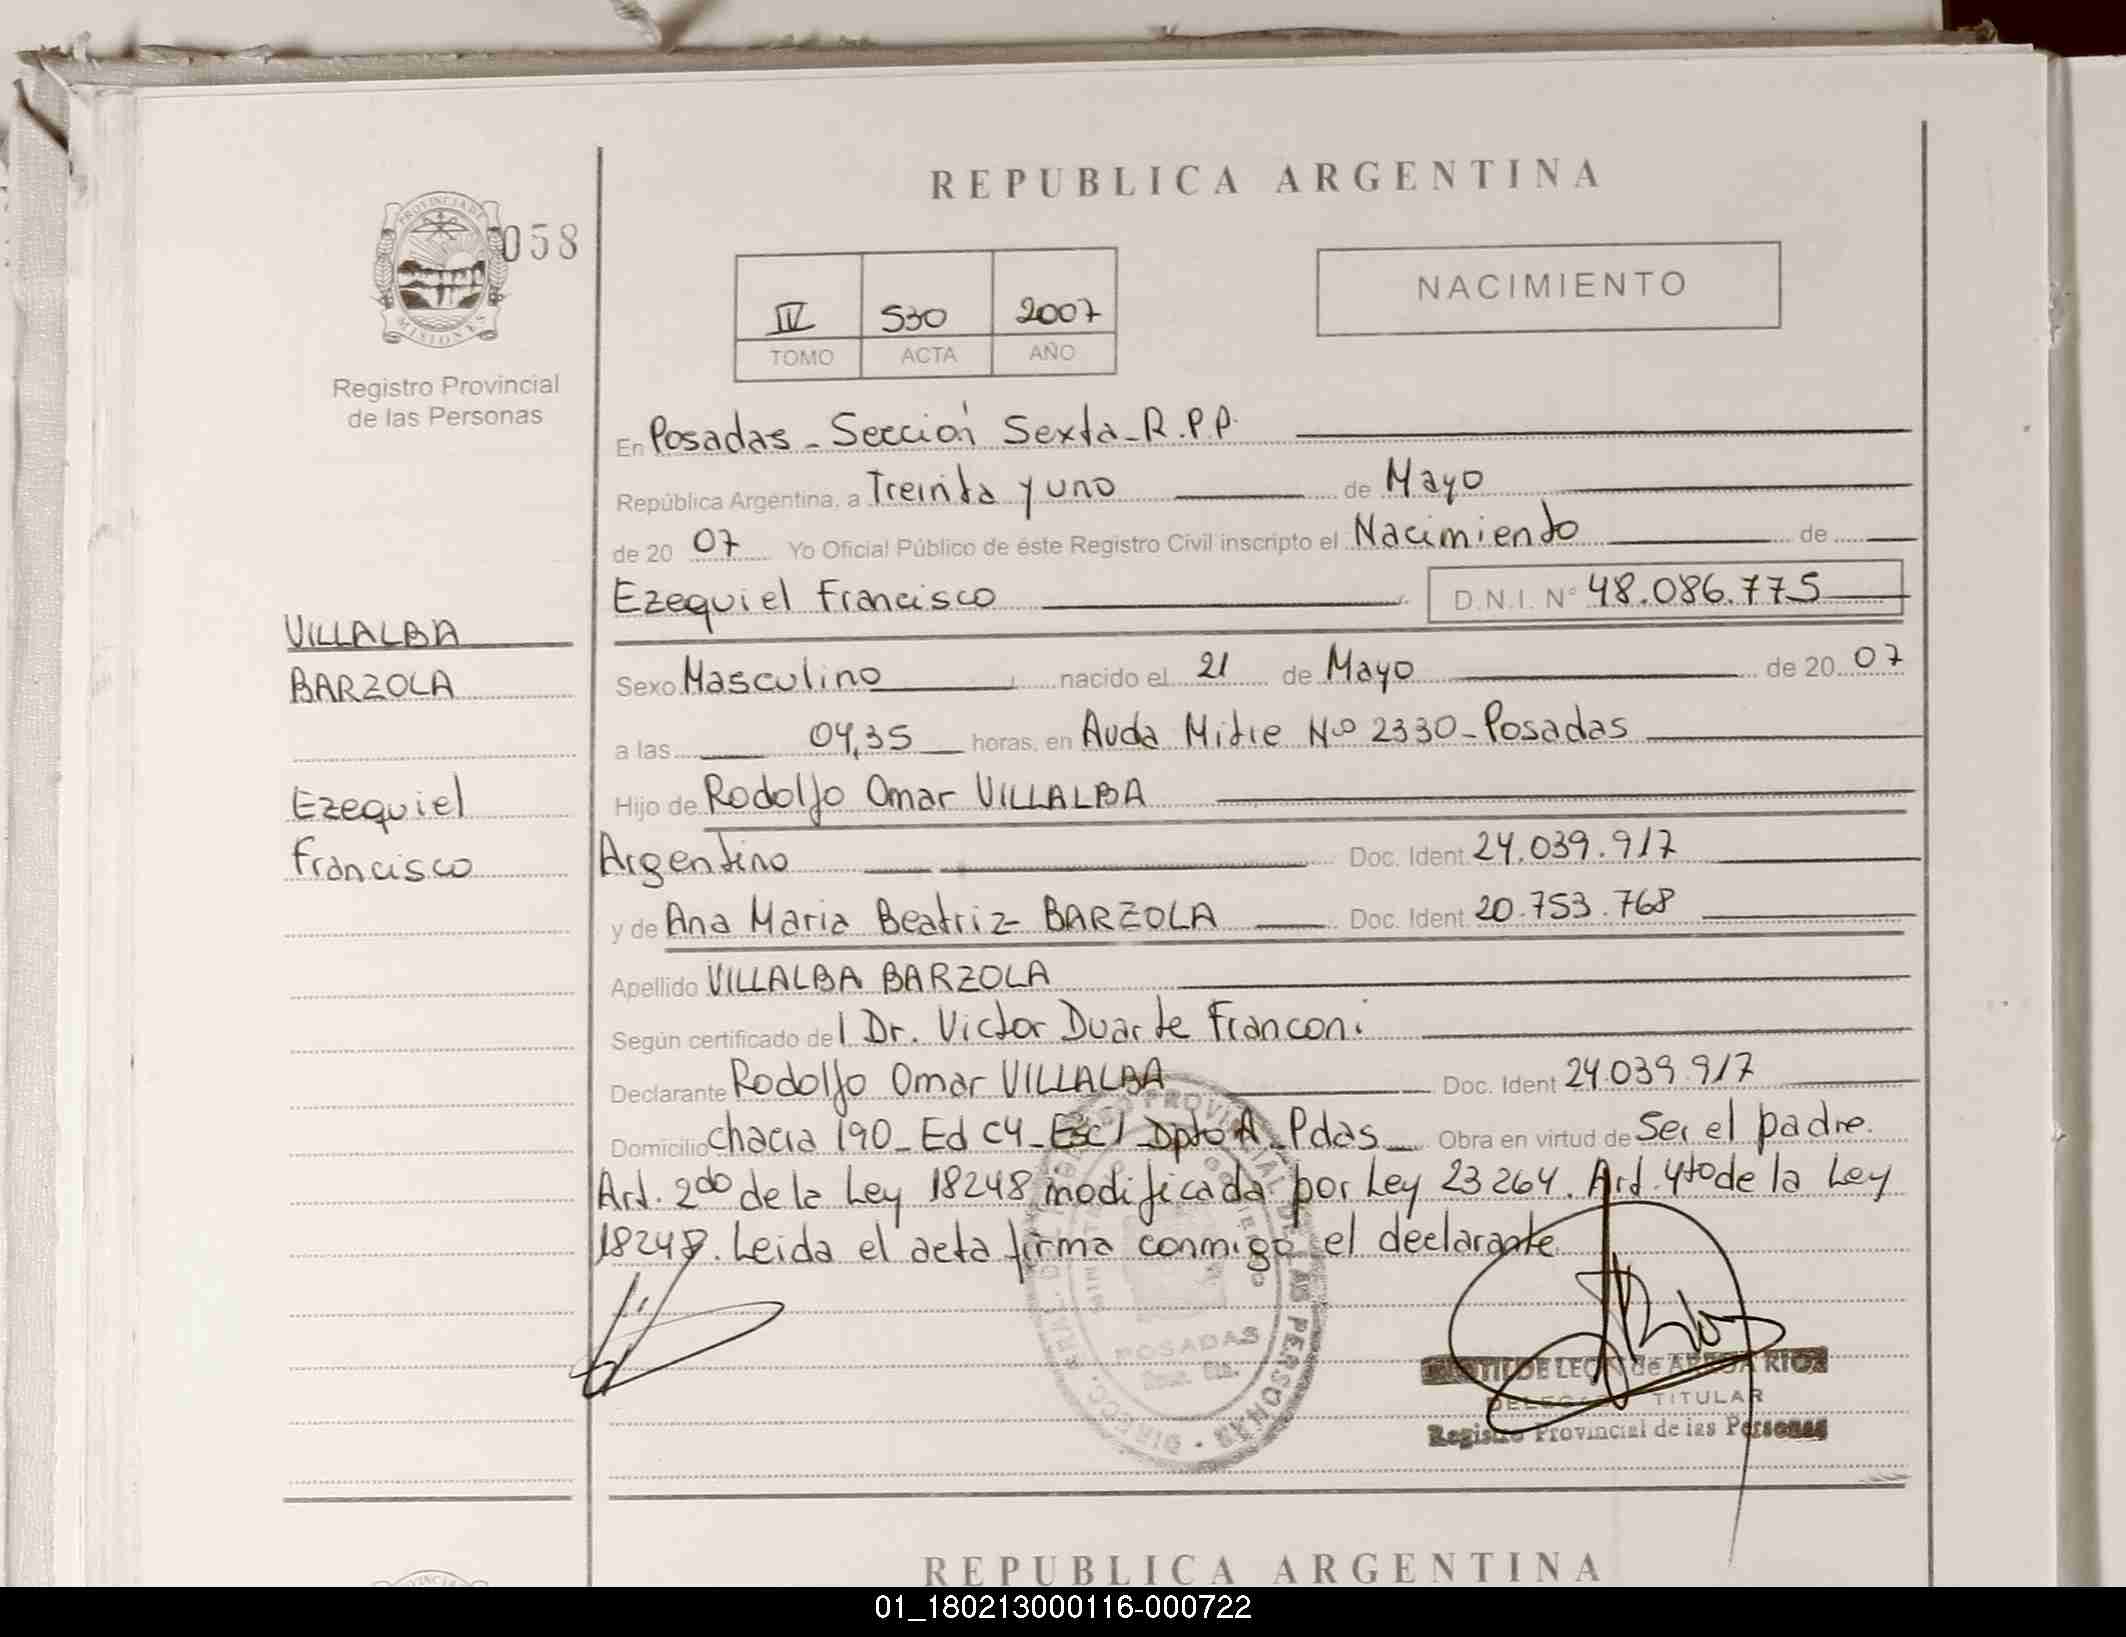 REPUBLICA ARGENTINA
PROVINCIA DE MISIONES
058
Registro Provincial
de las Personas
IV 530 2007
TOMO ACTA AÑO
NACIMIENTO
En Posadas - Sección Sexta - R.P.P.
República Argentina, a Treinta y uno de Mayo
de 20 07 Yo Oficial Público de éste Registro Civil inscripto el Nacimiento de
Ezequiel Francisco D.N.I. N° 48.086.775
VILLALBA
BARZOLA
Ezequiel
Francisco
Sexo Masculino nacido el 21 de Mayo de 20 07
a las 04,35 horas, en Avda Mitre Nº 2330 - Posadas
Hijo de Rodolfo Omar VILLALBA
Argentino Doc. Ident. 24.039.917
y de Ana Maria Beatriz BARZOLA Doc. Ident. 20.753.768
Apellido VILLALBA BARZOLA
Según certificado del Dr. Victor Duarte Franconi
Declarante Rodolfo Omar VILLALBA Doc. Ident 24.039.917
Domicilio chacra 190 - Ed C4 - Esc 1 Dpto A - Pdas Obra en virtud de Ser el padre.
Art. 2do de la Ley 18248 modificada por Ley 23264. Art. 4to de la Ley
18248. Leida el acta firma conmigo el declarante
POSADAS
DE LEON de
TITULAR
Registro Provincial de las Personas
REPUBLICA ARGENTINA
01_180213000116-000722